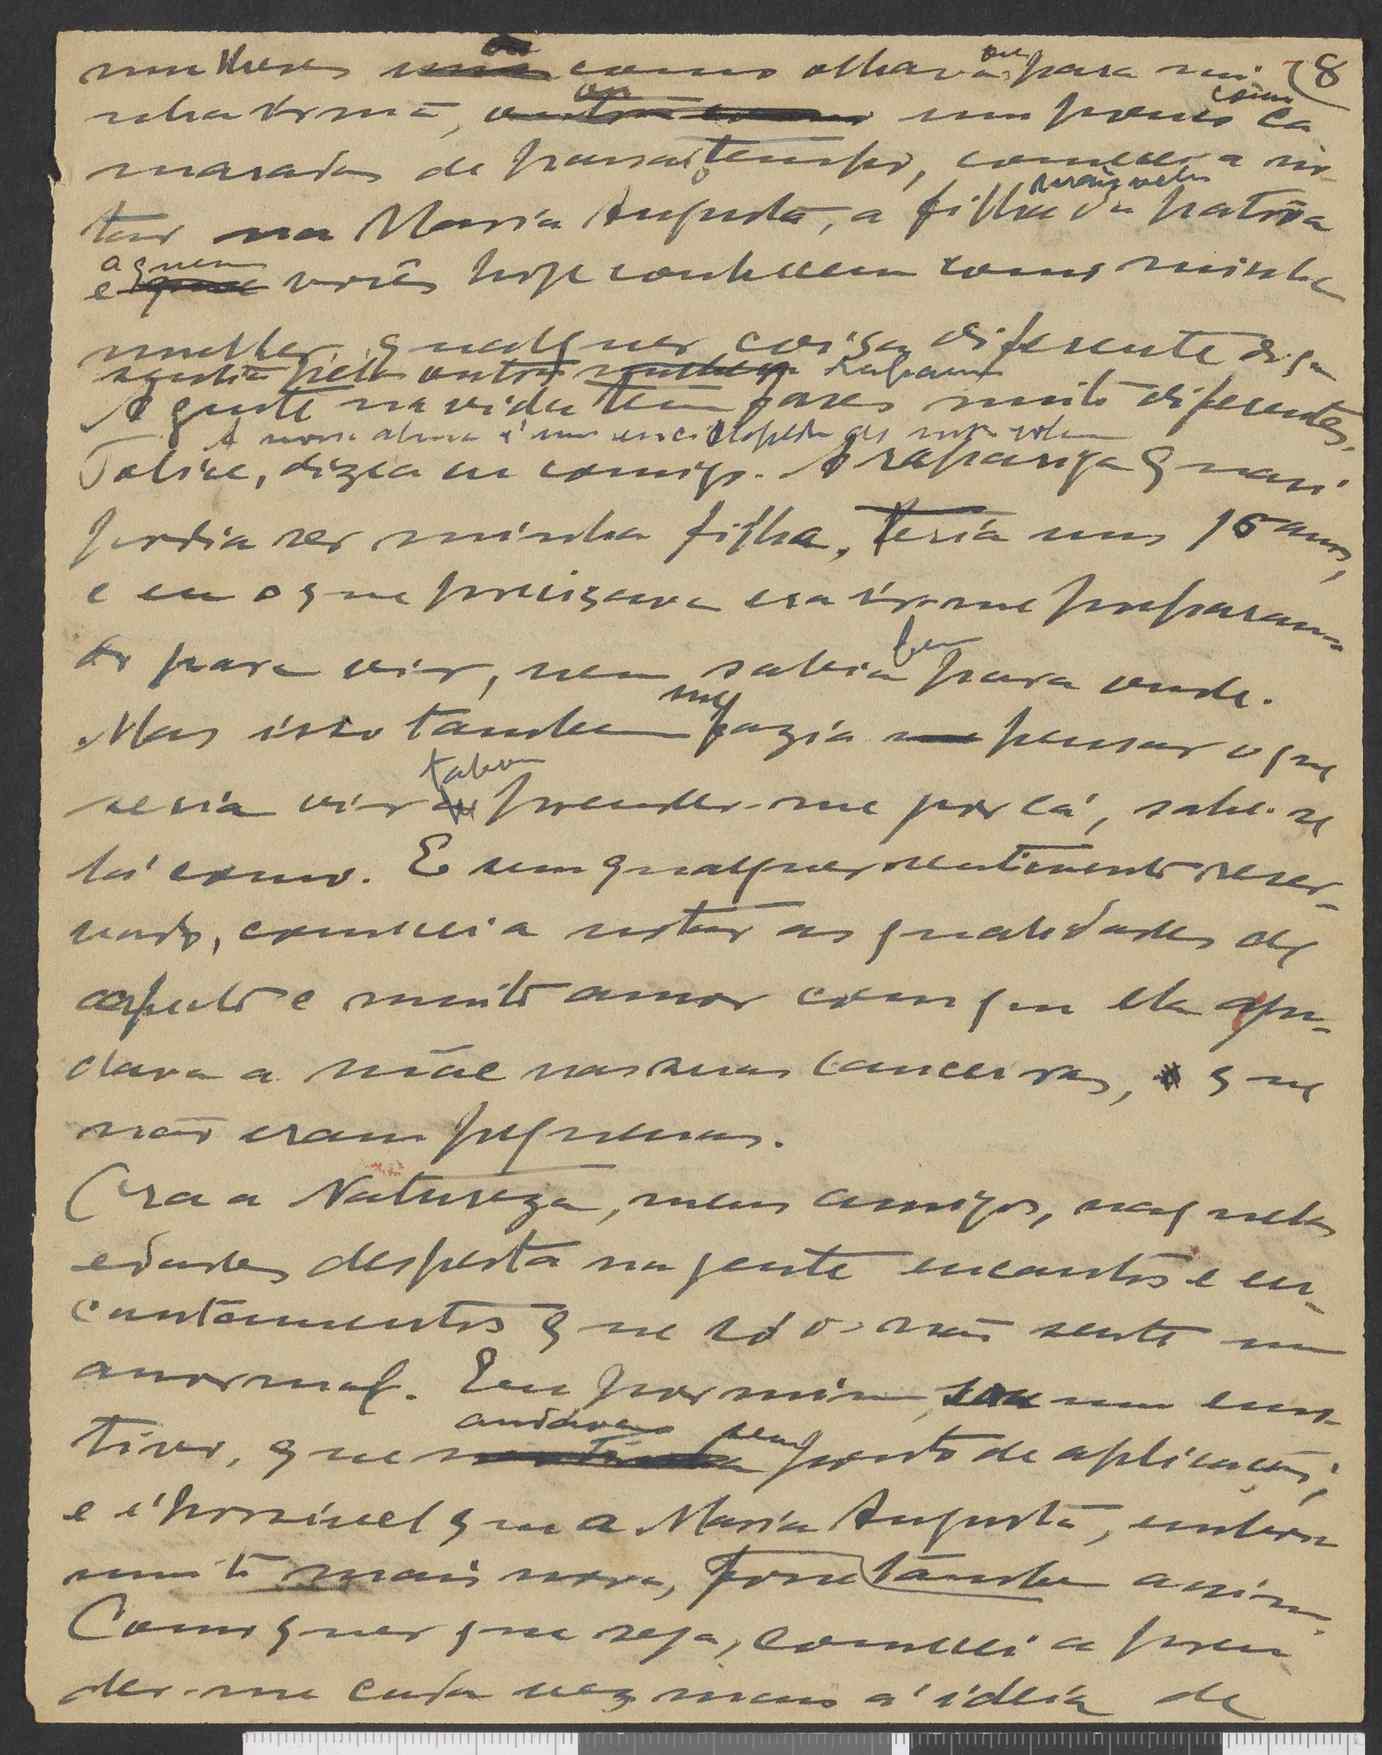 mulheres como olhava para mi- 8
nha irmã, ou um pouco como ca
maradas de passatempo, comecei a no-
tar na Maria Augusta, a filha mais velha da patrôa
a quem vocês hoje conhecem como minha
mulher, qualquer coisa diferente da q
sentia pela outra
A gente na vida tem fases muito diferentes.
A nossa alma é uma enciclopedia de
Tolice, dizia eu comigo. A rapariga quasi
podia ser minha filha, teria uns 16 anos,
e eu o que precisava era ir-me preparan-
do para vir, nem sabia bem para onde.
Mas isso tambem me fazia pensar o que
seria vir prender-me por cá, sabe-se
lá como. E sem qualquer sentimento reser-
vado, comecei a notar as qualidades de
aspecto e muito amor com que ela aju-
dava a mãe nas suas canceiras, que
não eram pequenas.
Ora a Natureza, meus amigos, naquelas
edades desperta na gente encantos e en-
cantamentos que só os não sente um
anormal. Eu por mim, sou um emo-
tivo, que andava sem ponto de aplicação;
e é possivel que a Maria Augusta, embora
muito mais nova, fosse tambem assim.
Como quer que seja, comecei a pren
der-me cada vez mais á idéia de